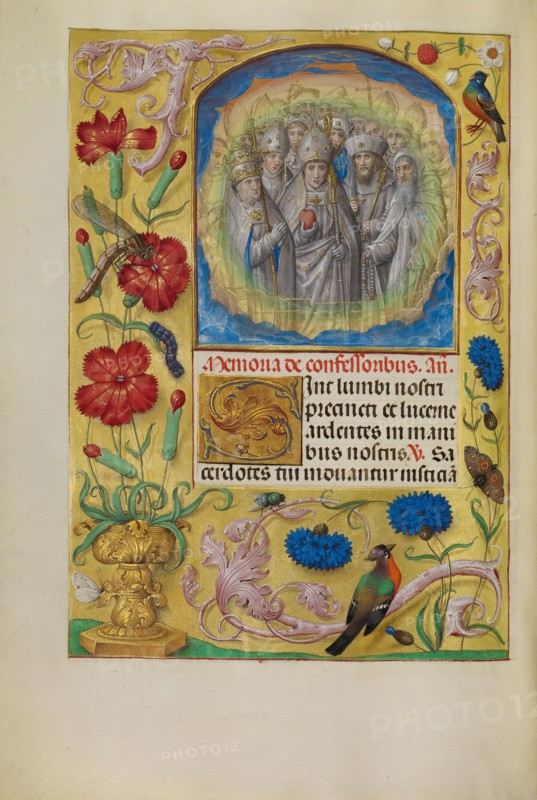 Memoria de confessoribus. Añ.
Sint lumbi nostri
precincti et lucerne
ardentes in mani
bus nostris. V. Sa
cerdotes tui induantur iusticiã
PHOTO12